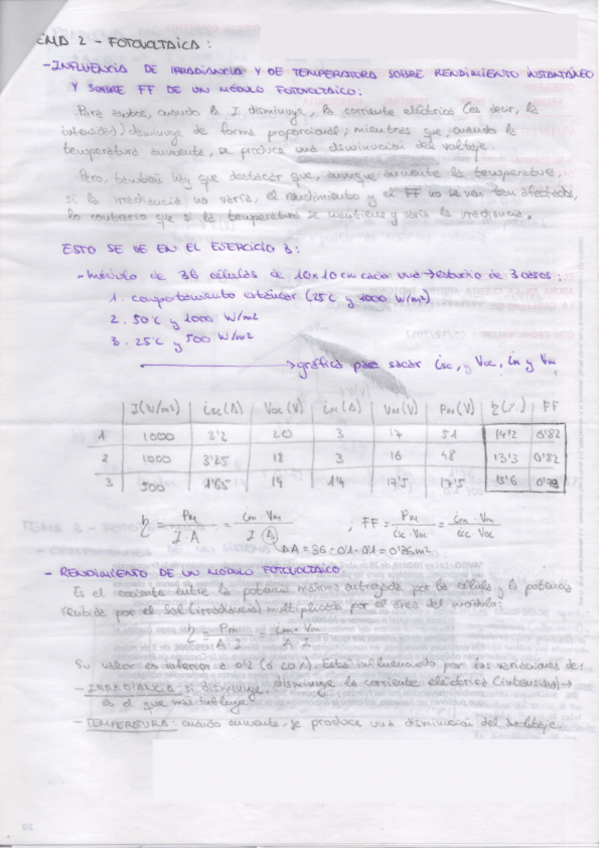 EMA 2 - FOTOVOLTAICA:
- INFLUENCIA DE IRRADIANCIA Y DE TEMPERATURA SOBRE RENDIMIENTO INSTANTÁNEO
Y SOBRE FF DE UN MÓDULO FOTOVOLTAICO:
Para ambos, cuando la I disminuye, la corriente eléctrica (es decir, la
intensidad) disminuye de forma proporcional; mientras que, cuando la
temperatura aumenta, se produce una disminución del voltaje.
Pero, también hay que destacar que, aunque aumente la temperatura,
si la irradiancia no varía, el rendimiento y el FF no se ven tan afectados,
lo contrario que si la temperatura se mantiene y varía la irradiancia.
ESTO SE VE EN EL EJERCICIO 3:
- Módulo de 36 células de 10x10 cm cada una → estudio de 3 casos:
1. comportamiento estándar (25°C y 1000 W/m2)
2. 50°C y 1000 W/m2
3. 25°C y 500 W/m2
→ gráfica para sacar isc, y Voc, im y Vm
I(W/m2) isc(A) Voc(V) im(A) Vm(V) Pm(V) η(%) FF
1 1000 3'2 20 3 17 51 14'2 0'82
2 1000 3'25 18 3 16 48 13'3 0'82
3 500 1'65 14 1'4 17'5 17'5 13'6
η = Pm / I·A = im Vm / I A ; FF = Pm / isc·Voc = im·Vm / isc Voc
A = 36·0'1·0'1 = 0'36m2
- RENDIMIENTO DE UN MÓDULO FOTOVOLTAICO
Es el cociente entre la potencia máxima entregada por la célula y la potencia
recibida por el Sol (irradiancia) multiplicada por el área del módulo:
η = Pm / A·I = im·Vm / A·I
Su valor es inferior a 0'2 (ó 20%). Está influenciado por las variaciones de:
- IRRADIANCIA: si disminuye, disminuye la corriente eléctrica (intensidad) →
es el que más influye.
- TEMPERATURA: cuando aumente, se produce una disminución del voltaje.